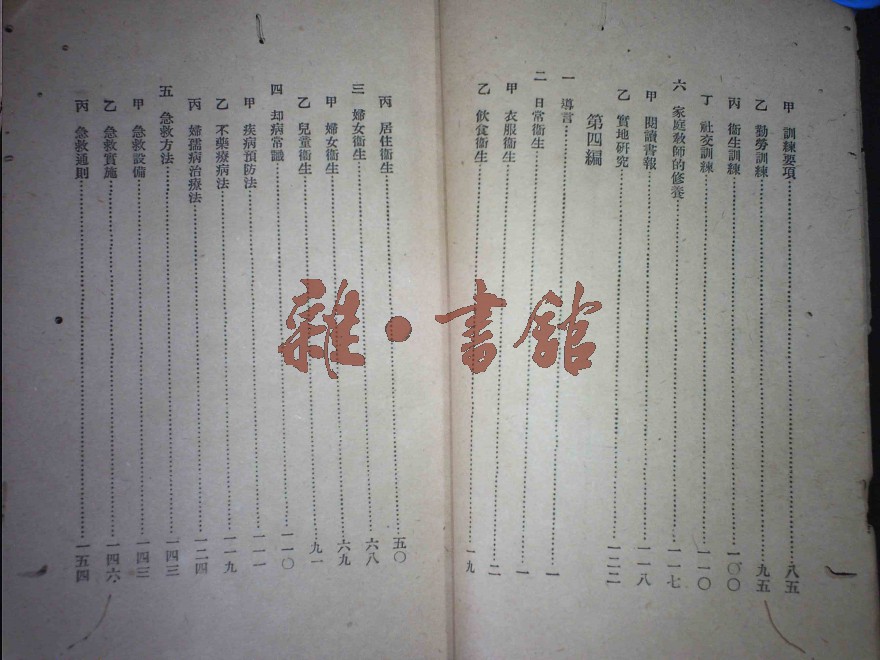 甲 訓練要項 八五
乙 勤勞訓練 九五
丙 衞生訓練 一〇〇
丁 社交訓練 一一〇
六 家庭敎師的修養 一一七
甲 閱讀書報 一一八
乙 實地研究 一二二
第四編
一 導言 一
二 日常衞生 一
甲 衣服衞生 二
乙 飮食衞生 一九
丙 居住衞生 五〇
三 婦女衞生 六八
甲 婦女衞生 六九
乙 兒童衞生 九一
四 却病常識 一一〇
甲 疾病預防法 一一一
乙 不藥療病法 一一九
丙 婦孺病治療法 一二四
五 急救方法 一四三
甲 急救設備 一四三
乙 急救實施 一四六
丙 急救通則 一五四
雜·書館